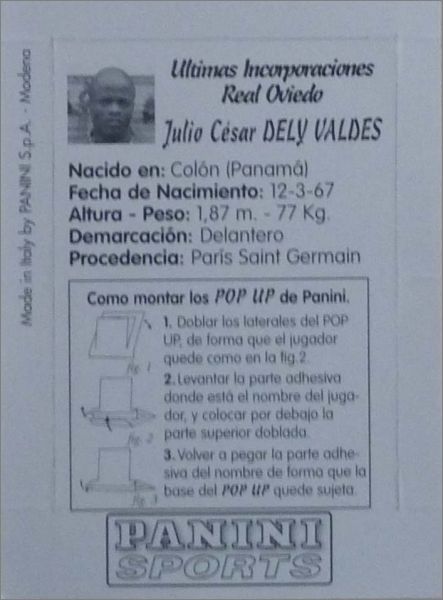 Ultimas Incorporaciones
Real Oviedo
Julio César DELY VALDES
Nacido en: Colón (Panamá)
Fecha de Nacimiento: 12-3-67
Altura - Peso: 1,87 m. - 77 Kg.
Demarcación: Delantero
Procedencia: París Saint Germain
Made in Italy by PANINI S.p.A. - Modena
Como montar los POP UP de Panini.
1. Doblar los laterales del POP
UP, de forma que el jugador
quede como en la fig.2.
fig. 1
2. Levantar la parte adhesiva
donde está el nombre del juga-
dor, y colocar por debajo la
parte superior doblada.
fig. 2
3. Volver a pegar la parte adhe-
siva del nombre de forma que la
base del POP UP quede sujeta.
fig. 3
PANINI
SPORTS